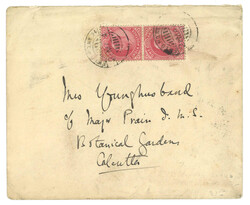 Mrs Younghusband
c/o Major Prain I.M.S.
Botanical Gardens
Calcutta